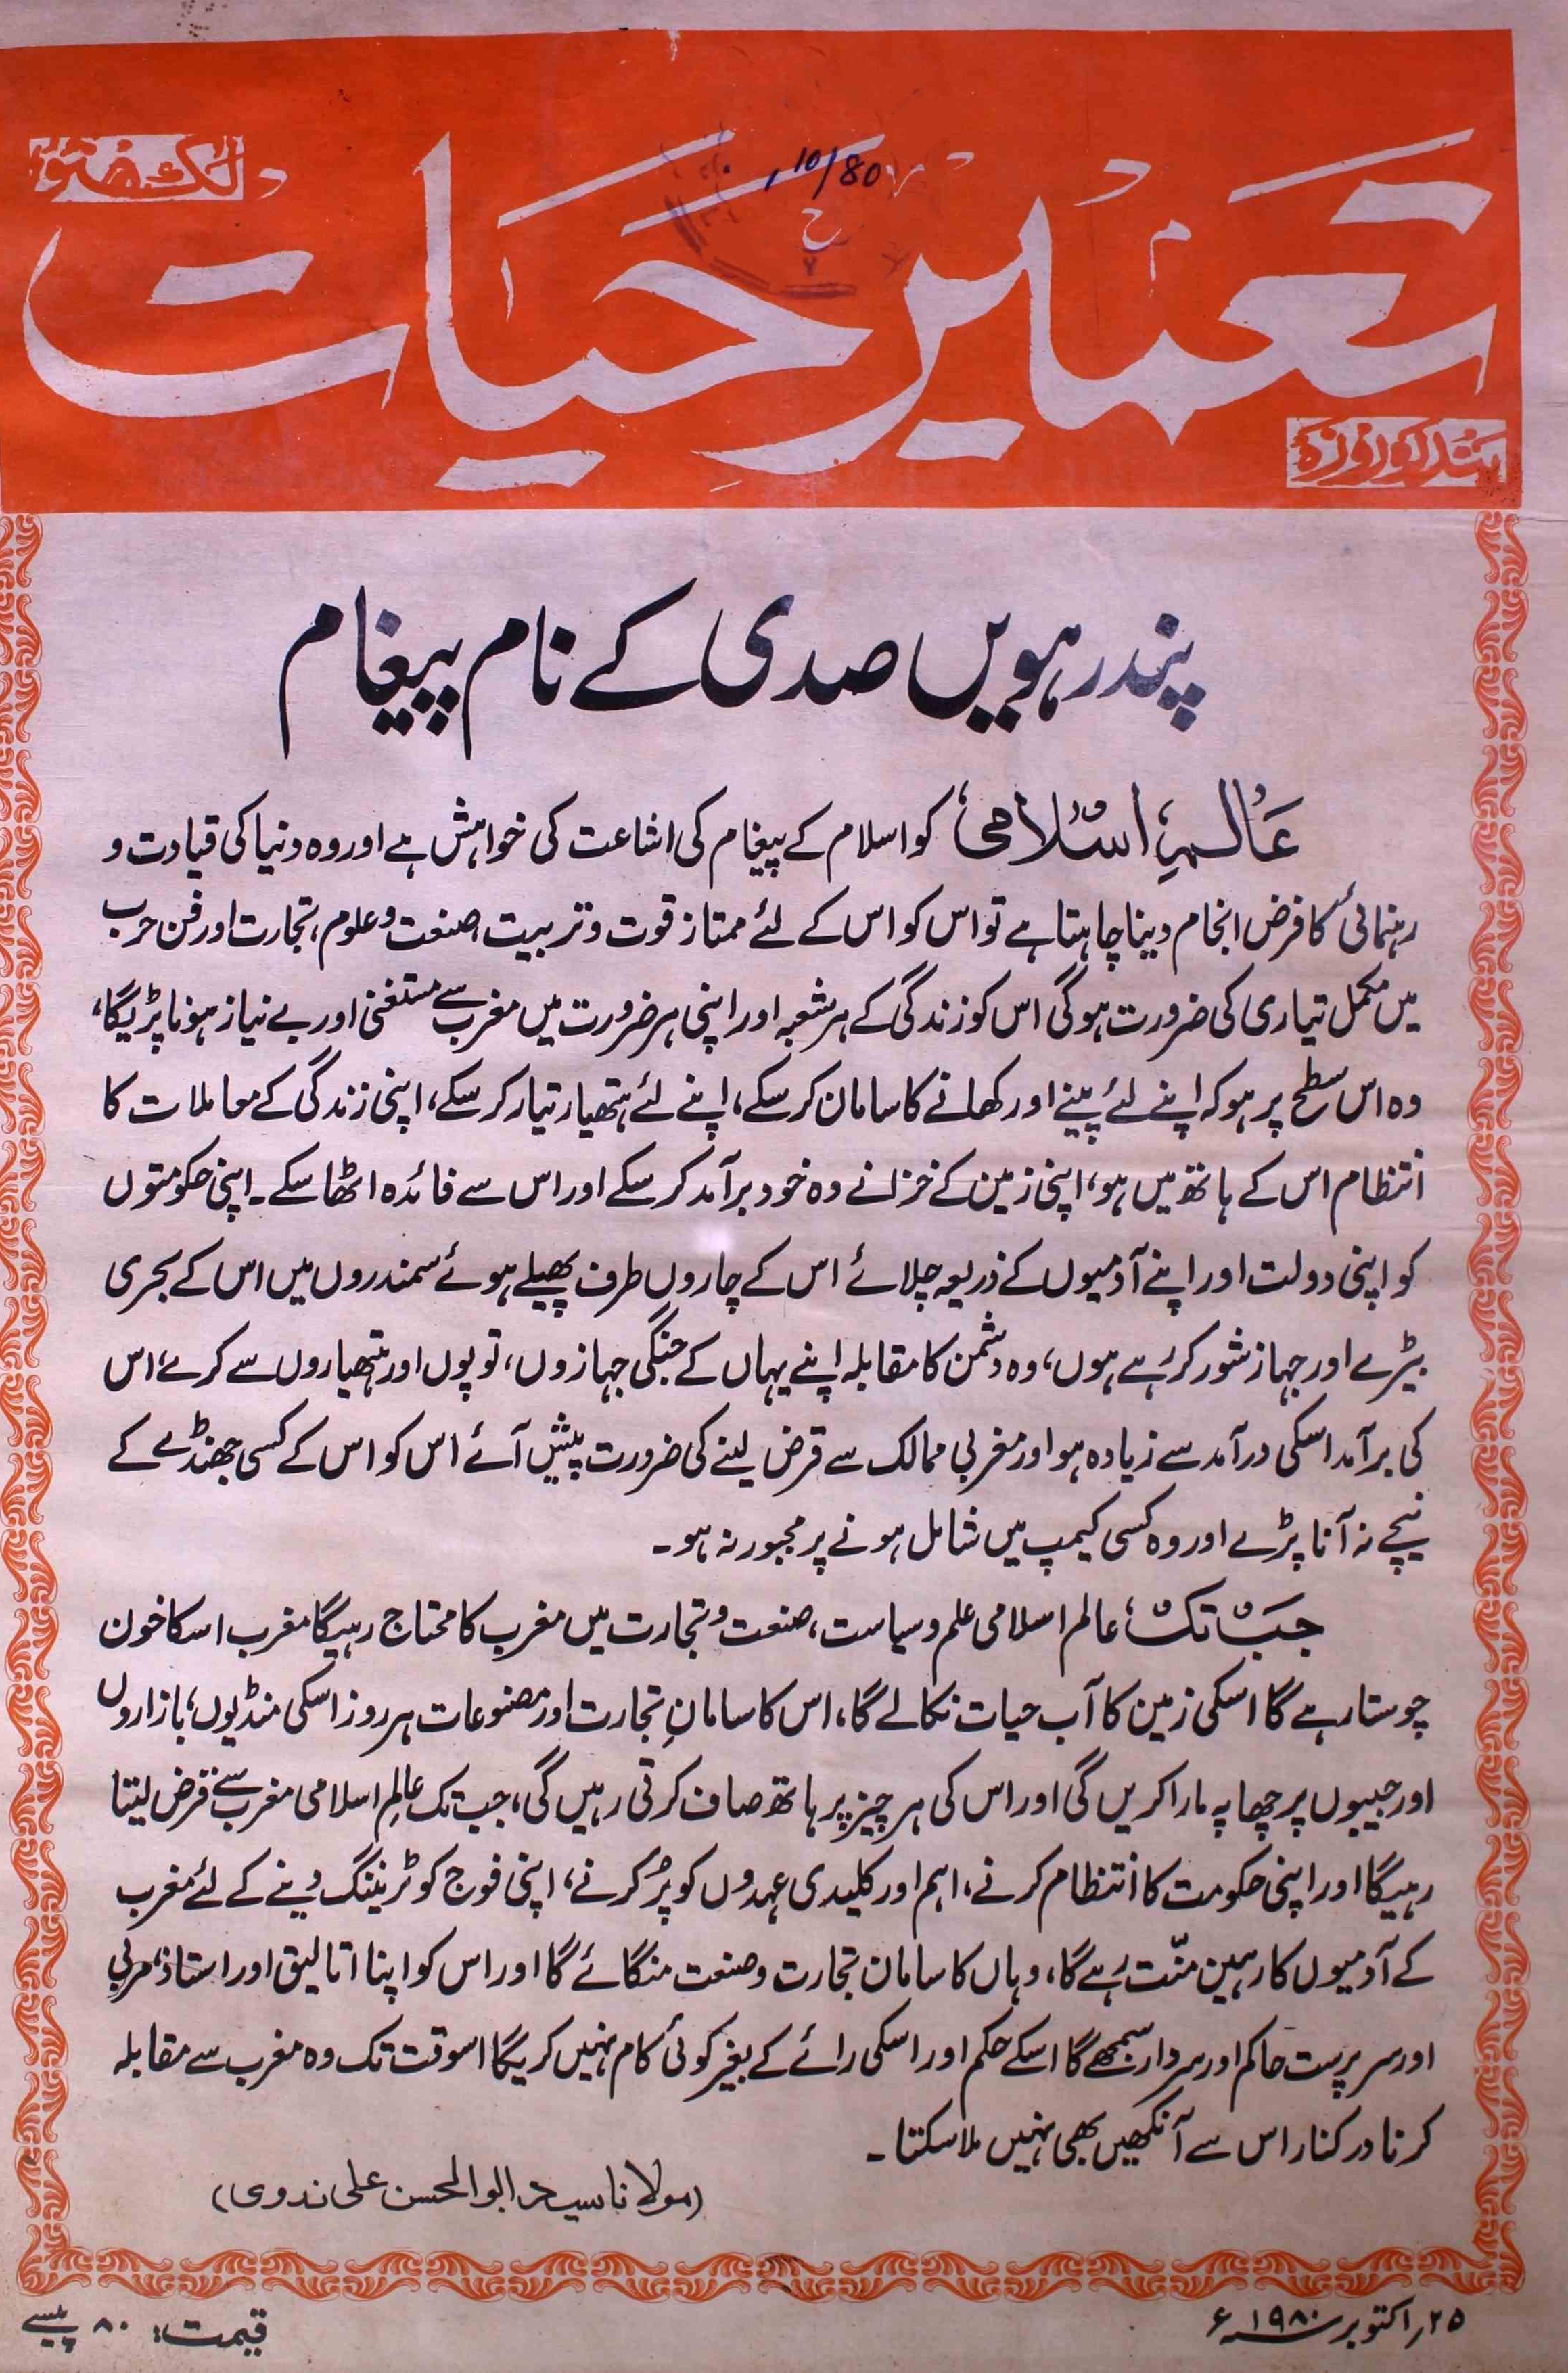 لکھنؤ
10/80
تعمیر حیات
پندرہ روزہ
پندرہویں صدی کے نام پیغام
عالمِ اسلامی، کو اسلام کے پیغام کی اشاعت کی خواہش ہے اور وہ دنیا کی قیادت و
رہنمائی کا فرض انجام دینا چاہتا ہے تو اس کو اس کے لئے ممتاز قوت و تربیت، صنعت و علوم، تجارت اور فن حرب
میں مکمل تیاری کی ضرورت ہوگی اس کو زندگی کے ہر شعبہ اور اپنی ہر ضرورت میں مغرب سے مستغنی اور بے نیاز ہونا پڑیگا،
وہ اس سطح پر ہو کہ اپنے لئے پینے اور کھانے کا سامان کر سکے، اپنے لئے ہتھیار تیار کر سکے، اپنی زندگی کے معاملات کا
انتظام اس کے ہاتھ میں ہو، اپنی زمین کے خزانے وہ خود برآمد کر سکے اور اس سے فائدہ اٹھا سکے۔ اپنی حکومتوں
کو اپنی دولت اور اپنے آدمیوں کے ذریعہ چلائے اس کے چاروں طرف پھیلے ہوئے سمندروں میں اس کے بحری
بیڑے اور جہاز شور کر رہے ہوں، وہ دشمن کا مقابلہ اپنے یہاں کے جنگی جہازوں، توپوں اور ہتھیاروں سے کرے، اس
کی برآمد اسکی درآمد سے زیادہ ہو اور مغربی ممالک سے قرض لینے کی ضرورت پیش آئے اس کو اس کے کسی جھنڈے کے
نیچے نہ آنا پڑے اور وہ کسی کیمپ میں شامل ہونے پر مجبور نہ ہو۔
جب تک، عالم اسلامی علم و سیاست، صنعت و تجارت میں مغرب کا محتاج رہیگا مغرب اسکا خون
چوستا رہے گا اسکی زمین کا آب حیات نکالے گا، اس کا سامانِ تجارت اور مصنوعات ہر روز اسکی منڈیوں، بازاروں
اور جیبوں پر چھاپہ مارا کریں گی اور اس کی ہر چیز پر ہاتھ صاف کرتی رہیں گی، جب تک عالمِ اسلامی مغرب سے قرض لیتا
رہیگا اور اپنی حکومت کا انتظام کرنے، اہم اور کلیدی عہدوں کو پُر کرنے، اپنی فوج کو ٹریننگ دینے کے لئے مغرب
کے آدمیوں کا رہین منّت رہے گا، وہاں کا سامان تجارت و صنعت منگائے گا اور اس کو اپنا اتالیق اور استاذ، مربی
اور سرپرست حاکم اور سردار سمجھے گا اسکے حکم اور اسکی رائے کے بغیر کوئی کام نہیں کریگا اسوقت تک وہ مغرب سے مقابلہ
کرنا درکنار اس سے آنکھیں بھی نہیں ملا سکتا۔
(مولانا سید ابوالحسن علی ندوی)
۲۵؍ اکتوبر ۱۹۸۰ء
قیمت: ۸۰ پیسے